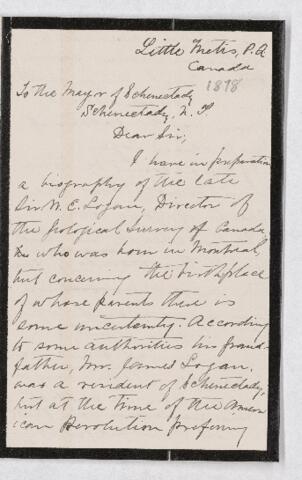 Little Metis, P.Q
Canada
1898
To the Mayor of Schenectady
Schenectady, N. Y.
Dear Sir,
I have in preparation
a biography of the late
Sir W. E. Logan, Director of
the Geological Survey of Canada,
who was born in Montreal,
but concerning the birthplace
of whose parents there is
some uncertainty. According
to some authorities his grand-
father, Mr. James Logan,
was a resident of Schenectady,
but at the time of the Amer
ican Revolution prefering